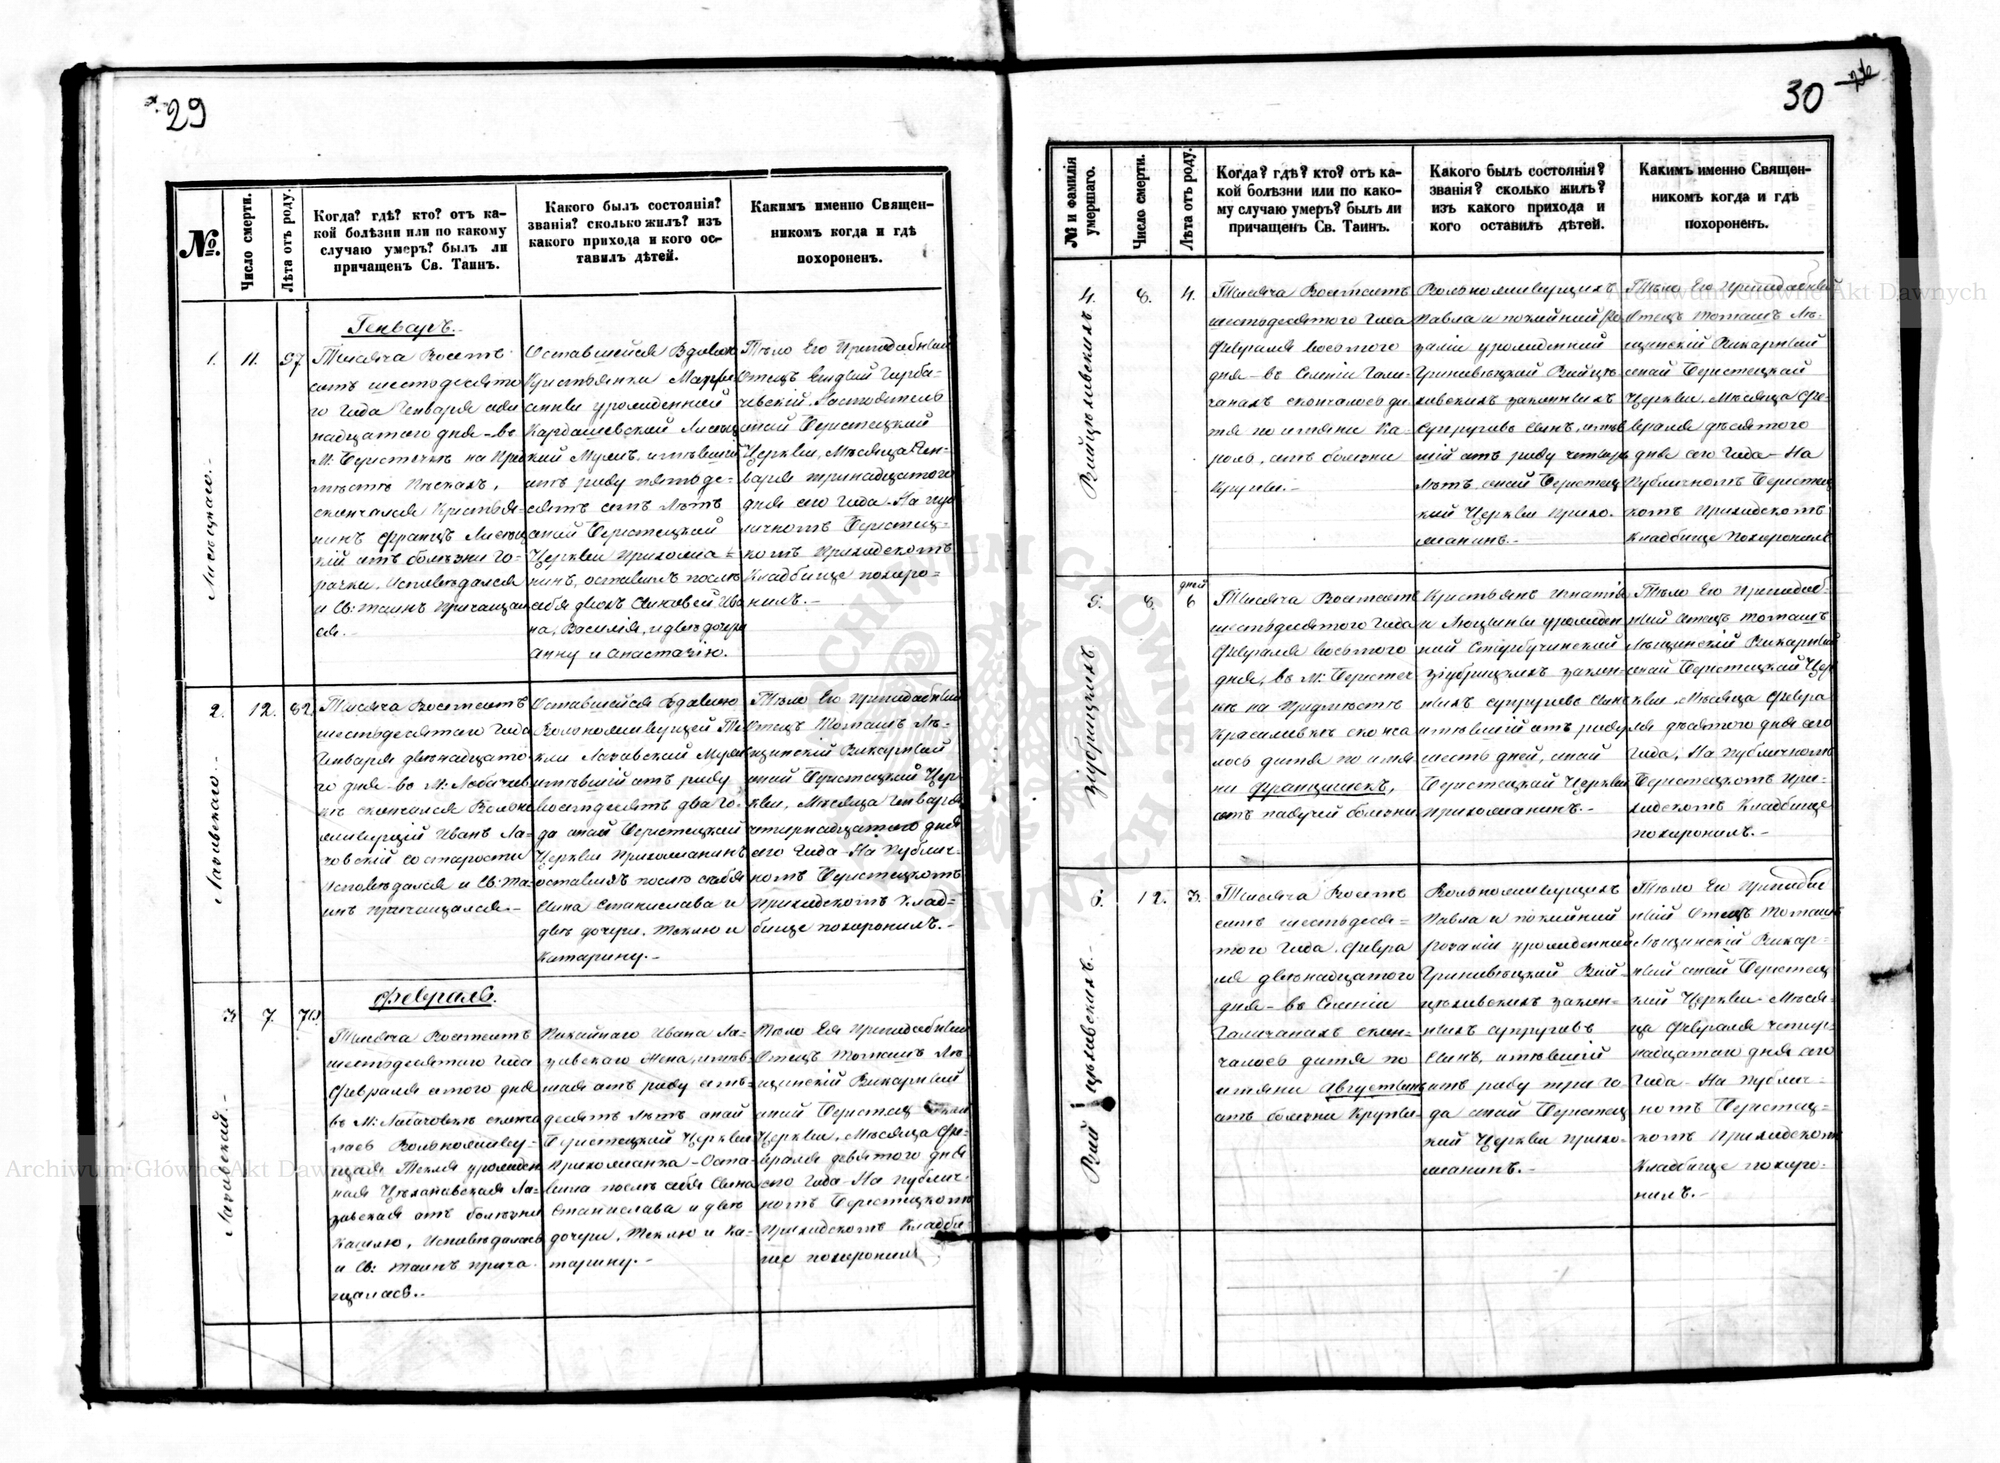 29
№
Число смерти.
Лѣта отъ роду.
Когда? гдѣ? кто? отъ ка-
кой болѣзни или по какому
случаю умеръ? былъ ли
причащенъ Св. Таинъ.
Какого былъ состоянія?
званія? сколько жилъ? изъ
какого прихода и кого ос-
тавилъ дѣтей.
Какимъ именно Священ-
никомъ когда и гдѣ
похороненъ.
Генварь.
1.
11.
57.
Тысяча Восемь
сотъ шестьдесято
го Года Генваря оди
надцатого дня – въ
М: Берестечкѣ на Пред
мѣстѣ Пѣскахъ,
скончался Крестья-
нинъ Францъ Лисец
кій отъ болѣзни Го-
рячки, Исповѣдался
и Св: таинъ Причащал
ся.
Оставшейся Вдовою
Крестьянки Марья
анны урожденной
кій Мужъ, имѣвшій
отъ роду пятьде-
сятъ семь Лѣтъ
оной Берестецкой
Церкви Прихожа-
нинъ, оставилъ послѣ
себя двохъ Сыновей Ива
на, Василія, и двѣ дочери
Анну и Анастазію.
Тѣло Его Преподобный
Отецъ
оной Берестецкой
Церкви, Мѣсяца Ген-
варя тринадцатого
дня сего Года – На пуб
личномъ Берестец-
комъ Приходскомъ
Кладбище похоро-
нилъ.
2.
12.
82.
Тысяча Восемсотъ
шестьдесятого Года
Генваря двѣнадцато
го дня – въ М: Лобачев
кѣ скончался Вольно
живущій Иванъ Ла-
зовскій со старости
Исповѣдался и Св: та-
инъ причащался.
Оставшейся Вдовою
Вольноживущей Те
кли Лазовской Мужъ
имѣвшій отъ роду
восемдесятъ два Го-
да оной Берестецкой
Церкви Прихожанинъ
оставилъ послѣ себя
Сына Станислава и
двѣ дочери, Теклю и
Катарину.
Тѣло Его Преподобный
Отецъ Томашъ Лѣ-
щинскій Викарный
оной Берестецкой Цер
кви, Мѣсяца Генваря
четырнадцатого дня
сего Года – На Публич-
номъ Берестецкомъ
Приходскомъ Клад-
бище похоронилъ.
Февраль.
3.
7.
70.
Тысяча Восемсотъ
шестьдесятого Года
Февраля семого дня
въ М: Лобачовкѣ сконча
лась Вольноживу-
щая Текля урожден
ная
зовская отъ болѣзни
Кашлю, Исповѣдалась
и Св: таинъ прича
щалась.
Покойнаго Ивана Ла-
зовскаго Жена, имѣв-
шая отъ роду семь-
десятъ Лѣтъ оной
Берестецкой Церкви
Прихожанка – Оста-
вила послѣ себя Сына
Станислава и двѣ
дочери, Теклю и Ка-
тарину.
Тѣло Ея Преподобный
Отецъ Томашъ Лѣ-
щинскій Викарный
оной Берестецкой
Церкви, Мѣсяца Фе-
враля девятого дня
сего Года – На публич-
номъ Берестецкомъ
Приходскомъ Кладби-
ще похоронилъ
30
№ и фамилія
умершаго.
Число смерти.
Лѣта отъ роду.
Когда? гдѣ? кто? отъ ка-
кой болѣзни или по како-
му случаю умеръ? былъ ли
причащенъ Св. Таинъ.
Какого былъ состоянія?
званія? сколько жилъ?
изъ какого прихода и
кого оставилъ дѣтей.
Какимъ именно Священ-
никомъ когда и гдѣ
похороненъ.
4.
8.
4.
Тысяча Восемсотъ
шестьдесятого Года
Февраля восьмого
дня – въ Селеніи Гали-
чанахъ скончалось ди-
тя по имяни Ка-
роль, отъ болѣзни
Крупы.
Вольноживущихъ
Павла и покойной Ро
заліи урожденной
законныхъ
Супруговъ Сынъ, имѣв
шій отъ роду четыре
Лѣтъ, оной Берестец
кой Церкви Прихо-
жанинъ.
Тѣло Его Преподобный
Отецъ Томашъ Лѣ-
щинскій Викарный
оной Берестецкой
Церкви, Мѣсяца Фе-
враля десятого
дня сего Года – На
Публичномъ Берестец
комъ Приходскомъ
Кладбище Похоронилъ
5.
8.
дней
6
Тысяча Восемсотъ
шестьдесятого Года
Февраля восьмого
дня, въ М: Берестеч
кѣ на Предмѣстѣ
скона
лось дитя по имя
ни Францишекъ,
отъ падучей болѣзни
Крестьянъ Игнатія
и Люцыны урожден
ной
закон
ныхъ супруговъ Сынъ
имѣвшій отъ роду
шесть дней, оной
Берестецкой Церкви
прихожанинъ.
Тѣло Его Преподоб-
ный Отецъ Томашъ
Лѣщинскій Викарный
оной Берестецкой Цер
кви Мѣсяца Февра
ля десятого дня сего
Года, На Публичномъ
Берестецкомъ При-
ходскомъ Кладбище
похоронилъ.
6.
12.
3.
Тысяча Восемь
сотъ шестьдеся-
того Года, Февра
ля двѣнадцатого
дня – въ Селеніи
Галичанахъ скон-
чалось дитя по
имяни Августинъ
отъ болѣзни Крупы
Вольноживущихъ
Павла и покойной
Розаліи урожденной
закон-
ныхъ супруговъ
Сынъ, имѣвшій
отъ роду три Го-
да оной Берестец
кой Церкви прихо-
жанинъ.
Тѣло Его Преподоб
ный Отецъ Томашъ
Лѣщинскій Викар-
ный оной Берестец
кой Церкви – Мѣся-
ца Февраля четыр-
надцатаго дня сего
Года – На Публич-
номъ Берестец-
комъ Приходскомъ
Кладбище похоро-
нилъ.
Archiwum Główne Akt Dawnych
Archiwum Główne Akt Dawnych
ARCHIWUM GŁÓWNE AKT DAWNYCH